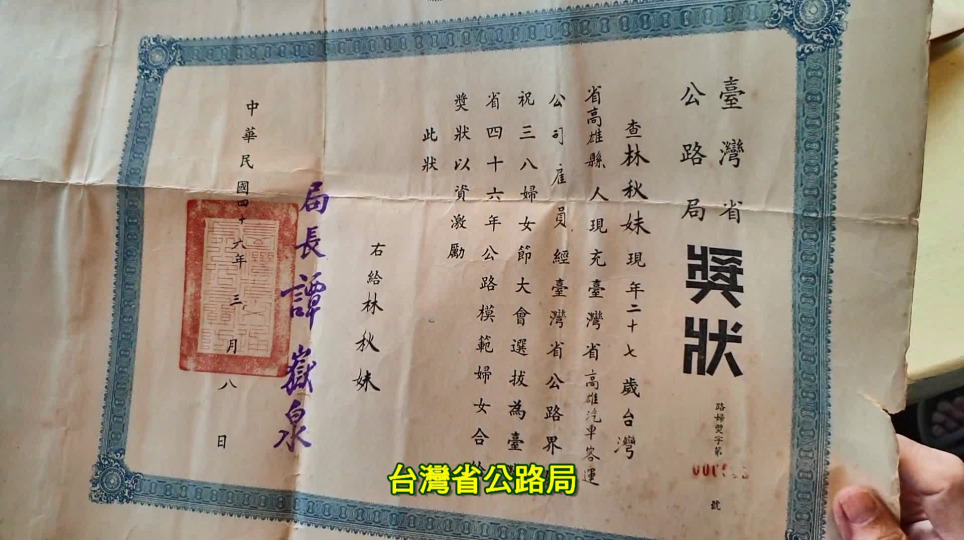 臺灣省
公路局
獎狀
路婦獎字第
號
查林秋妹現年二十七歲台灣
省高雄縣人現充臺灣省高雄汽車客運
公司雇員經臺灣省公路界
祝三八婦女節大會選拔為臺
省四十六年公路模範婦女合
獎狀以資激勵
此狀
右給林秋妹
局長譚嶽泉
中華民國四十六年三月八日
台灣省公路局